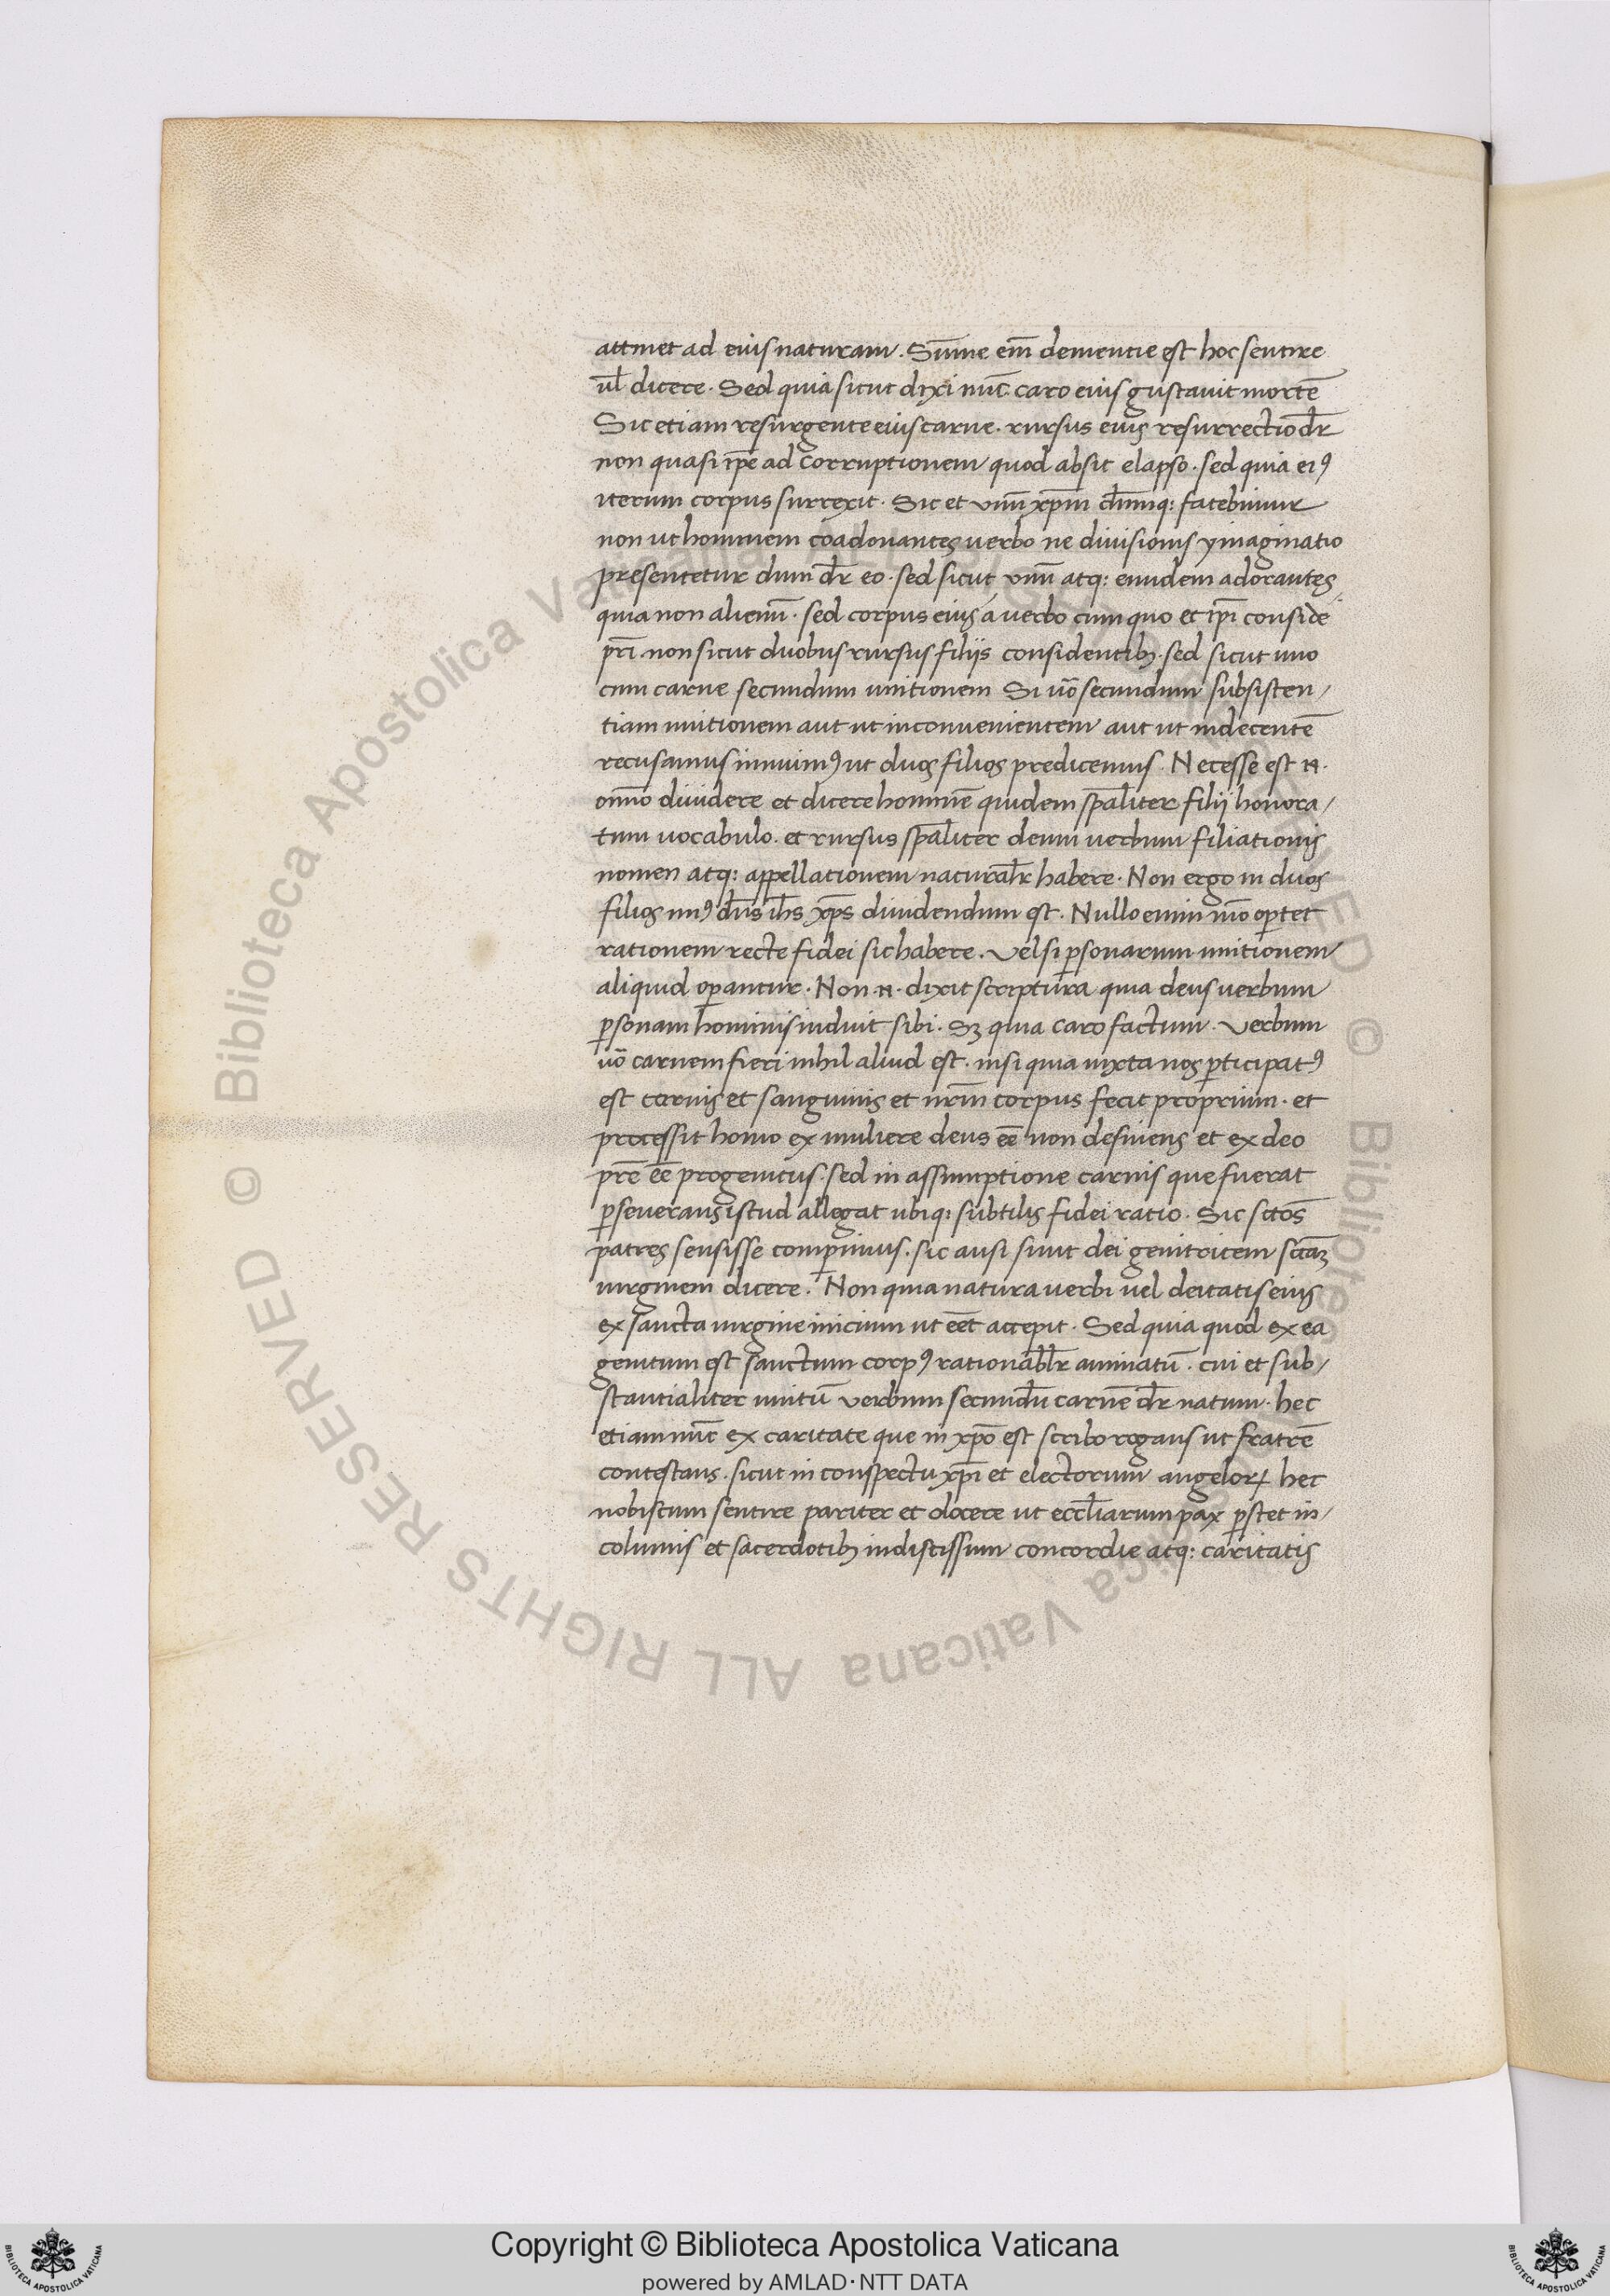 attinet ad eius naturam. Sūme em̄ dementie est hoc sentire
ul̄ dicere. Sed quia sicut dixi nūc caro eius gustauit mortē
Sic etiam resurgente eius carne. rursus eius resurrectio dr̄
non quasi ip̄e ad corruptionem quod absit elapso. sed quia eiꝰ
iterum corpus surrexit. Sic et vnū xp̄m dn̄mq: fatebimur
non ut hominem coadonantes uerbo ne diuisionis ymaginatio
presentetur dum dr̄ eo. sed sicut vnū atq: eundem adorantes
quia non alienū. sed corpus eius a verbo cum quo et ip̄i conside
pr̄i. non sicut duobus rursus filijs considentibꝫ. sed sicut uno
cum carne secundum unitionem Si uō secundum subsisten/
tiam unitionem aut ut inconuenientem aut ut indecentē
recusamus innuimꝰ ut duos filios predicemus. Necesse est .n.
oīno diuidere et dicere hominē quidem sp̄aliter filij honora/
tum uocabulo. et rursus sp̄aliter deum uerbum filiationis
nomen atq: appellationem naturalr̄ habere. Non ergo in duos
filios unꝰ dn̄s ih̄s xp̄s diuidendum est. Nullo enim mō oꝑtet
rationem recte fidei sic habere. Vel si ꝑsonarum unitionem
aliquid oꝑantur. Non .n. dixit scriptura quia deus uerbum
ꝑsonam hominis induit sibi. Sꝫ quia caro factum. Verbum
uō carnem fieri nihil aliud est. nisi quia iuxta nos ꝑticipatꝰ
est carnis et sanguinis et nr̄m corpus fecit proprium. et
processit homo ex muliere deus eē non desinens et ex deo
pr̄e eē progenitus. sed in assumptione carnis que fuerat
ꝑseuerans istud allegat ubiq: subtilis fidei ratio. Sic sc̄tos
patres sensisse comꝑimus. sic ausi sunt dei genitricem sc̄taꝫ
uirginem dicere. Non quia natura verbi uel deitatis eius
ex sancta uirgine inicium ut eēt accepit. Sed quia quod ex ea
genitum est sanctum corpꝰ rationablr̄ animatū. cui et sub/
stantialiter unitū verbum secundū carnē dr̄ natum. hec
etiam nūc ex caritate que in xp̄o est scribo rogans ut fratrē
contestans. sicut in conspectu xp̄i et electorum angeloꝝ hec
nobiscum sentire pariter et docere ut eccl̄iarum pax ꝑstet in/
columis et sacerdotibꝫ indiscissum concordie atq: caritatis
Copyright © Biblioteca Apostolica Vaticana
powered by AMLAD·NTT DATA